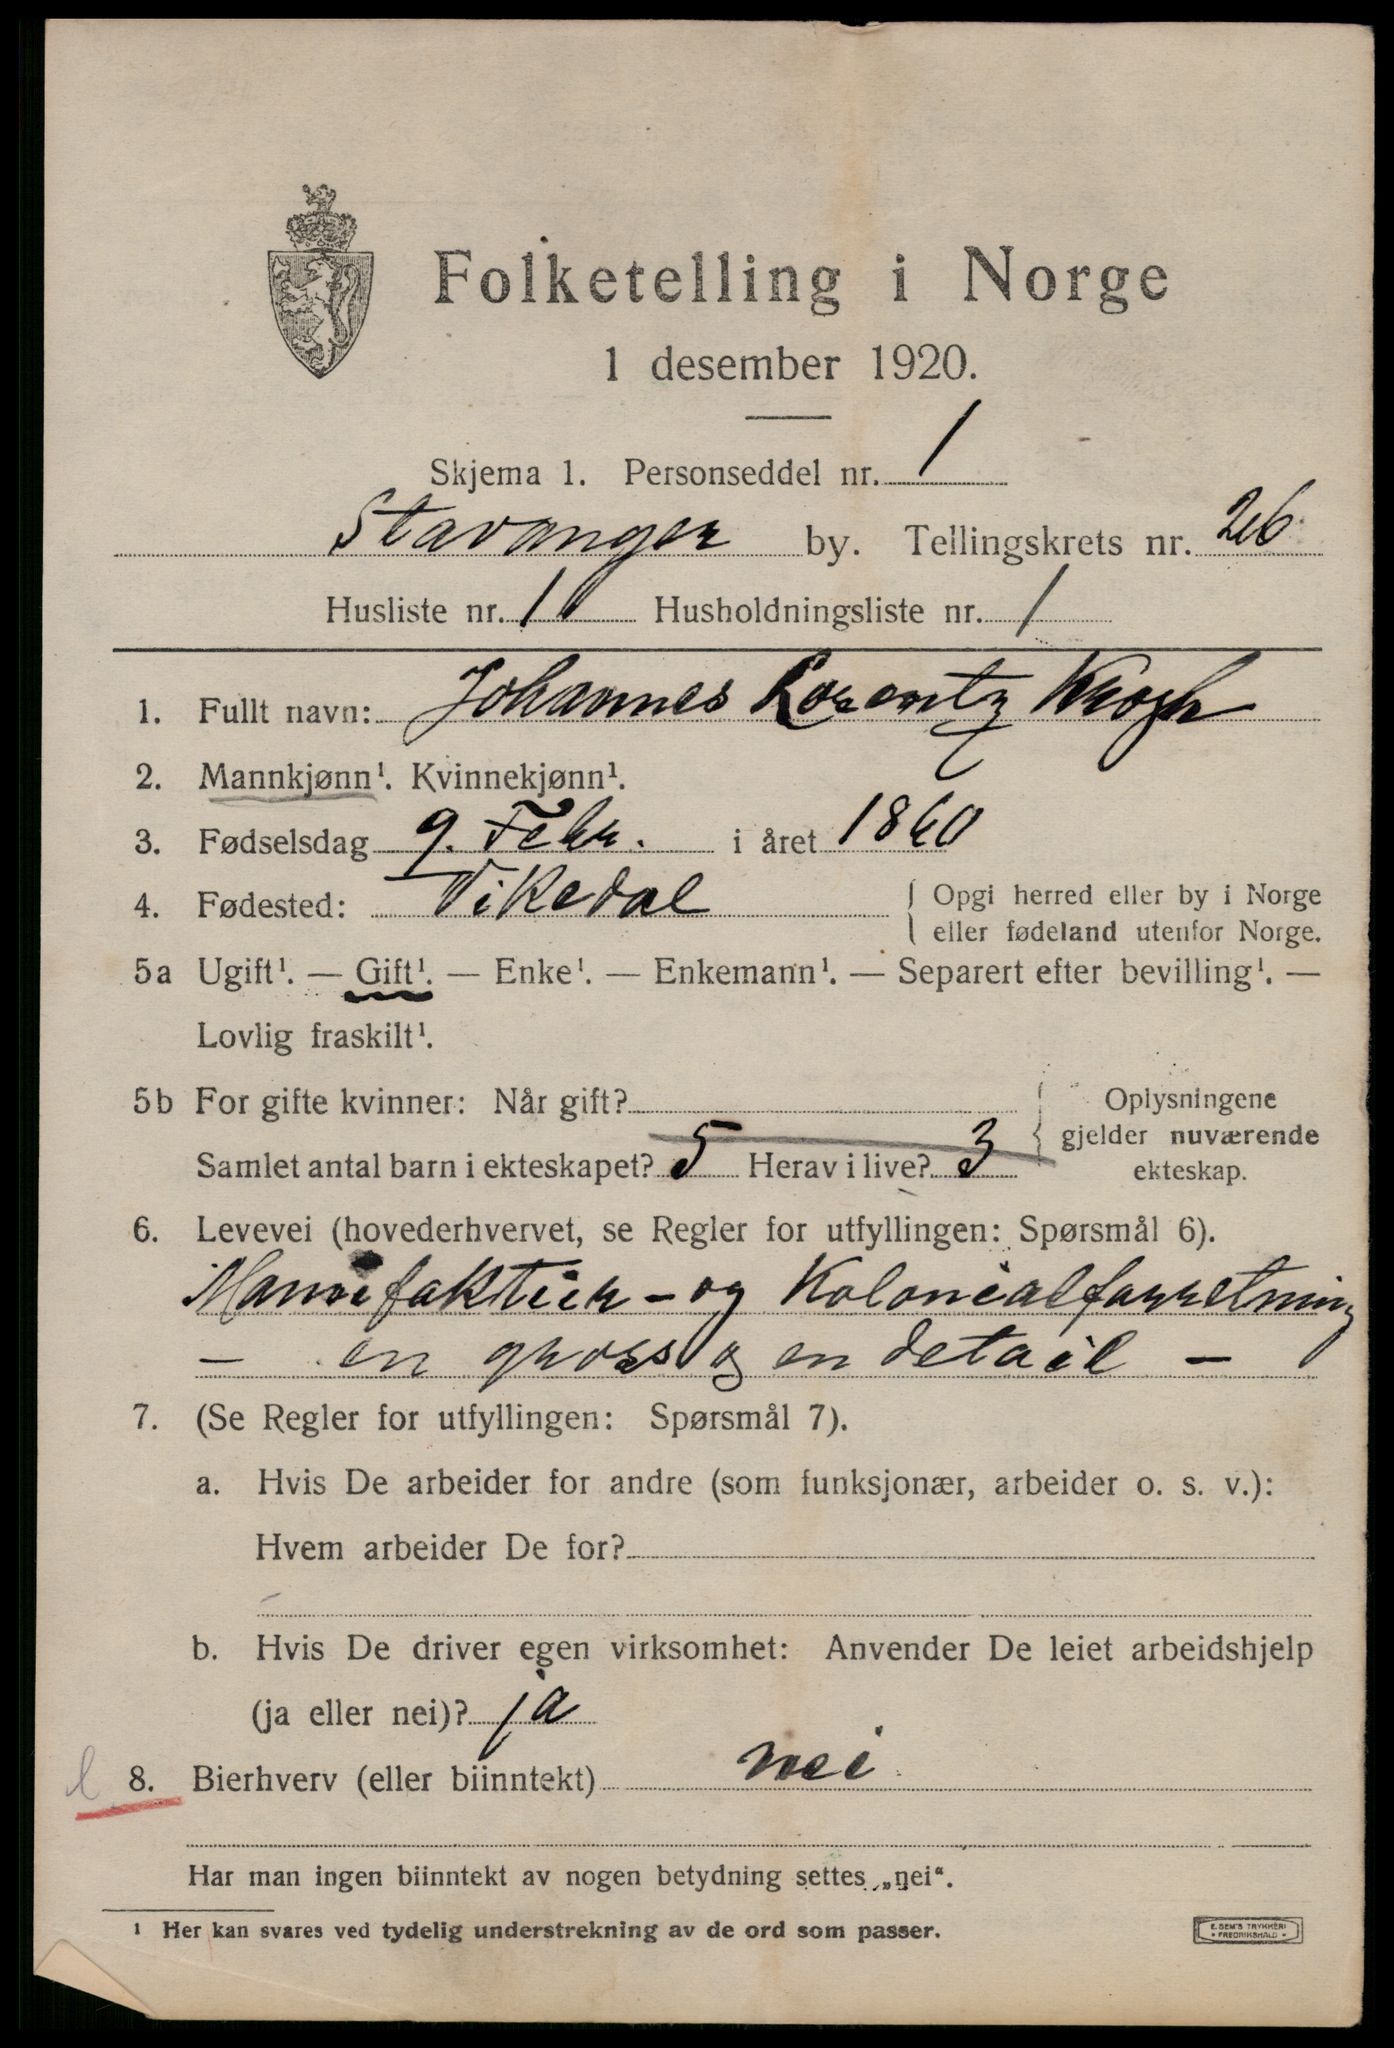 Folketelling i Norge
1 desember 1920.
Skjema 1. Personseddel nr. 1
Stavanger by. Tellingskrets nr. 26
Husliste nr. 1 Husholdningsliste nr. 1
1. Fullt navn: Johannes Lorentz Krogh
2. Mannkjønn¹. Kvinnekjønn¹.
3. Fødselsdag 9. Febr. i året 1860
4. Fødested: Vikedal { Opgi herred eller by i Norge
eller fødeland utenfor Norge.
5a Ugift¹. — Gift¹. — Enke¹. — Enkemann¹. — Separert efter bevilling¹. —
Lovlig fraskilt¹.
5b For gifte kvinner: Når gift? { Oplysningene
gjelder nuværende
ekteskap.
Samlet antal barn i ekteskapet? 5 Herav i live? 3
6. Levevei (hovederhvervet, se Regler for utfyllingen: Spørsmål 6).
Manufaktur - og Kolonialforretning
- en gross og en detail -
7. (Se Regler for utfyllingen: Spørsmål 7).
a. Hvis De arbeider for andre (som funksjonær, arbeider o. s. v.):
Hvem arbeider De for?
b. Hvis De driver egen virksomhet: Anvender De leiet arbeidshjelp
(ja eller nei)? ja
l 8. Bierhverv (eller biinntekt) nei
Har man ingen biinntekt av nogen betydning settes „nei“.
¹ Her kan svares ved tydelig understrekning av de ord som passer.
E. SEM'S TRYKKERI
* FREDRIKSHALD *